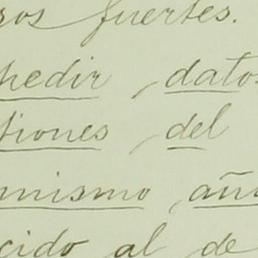 ros fuertes.
pedir, datos
tiones, del
mismo, aña
cido al de